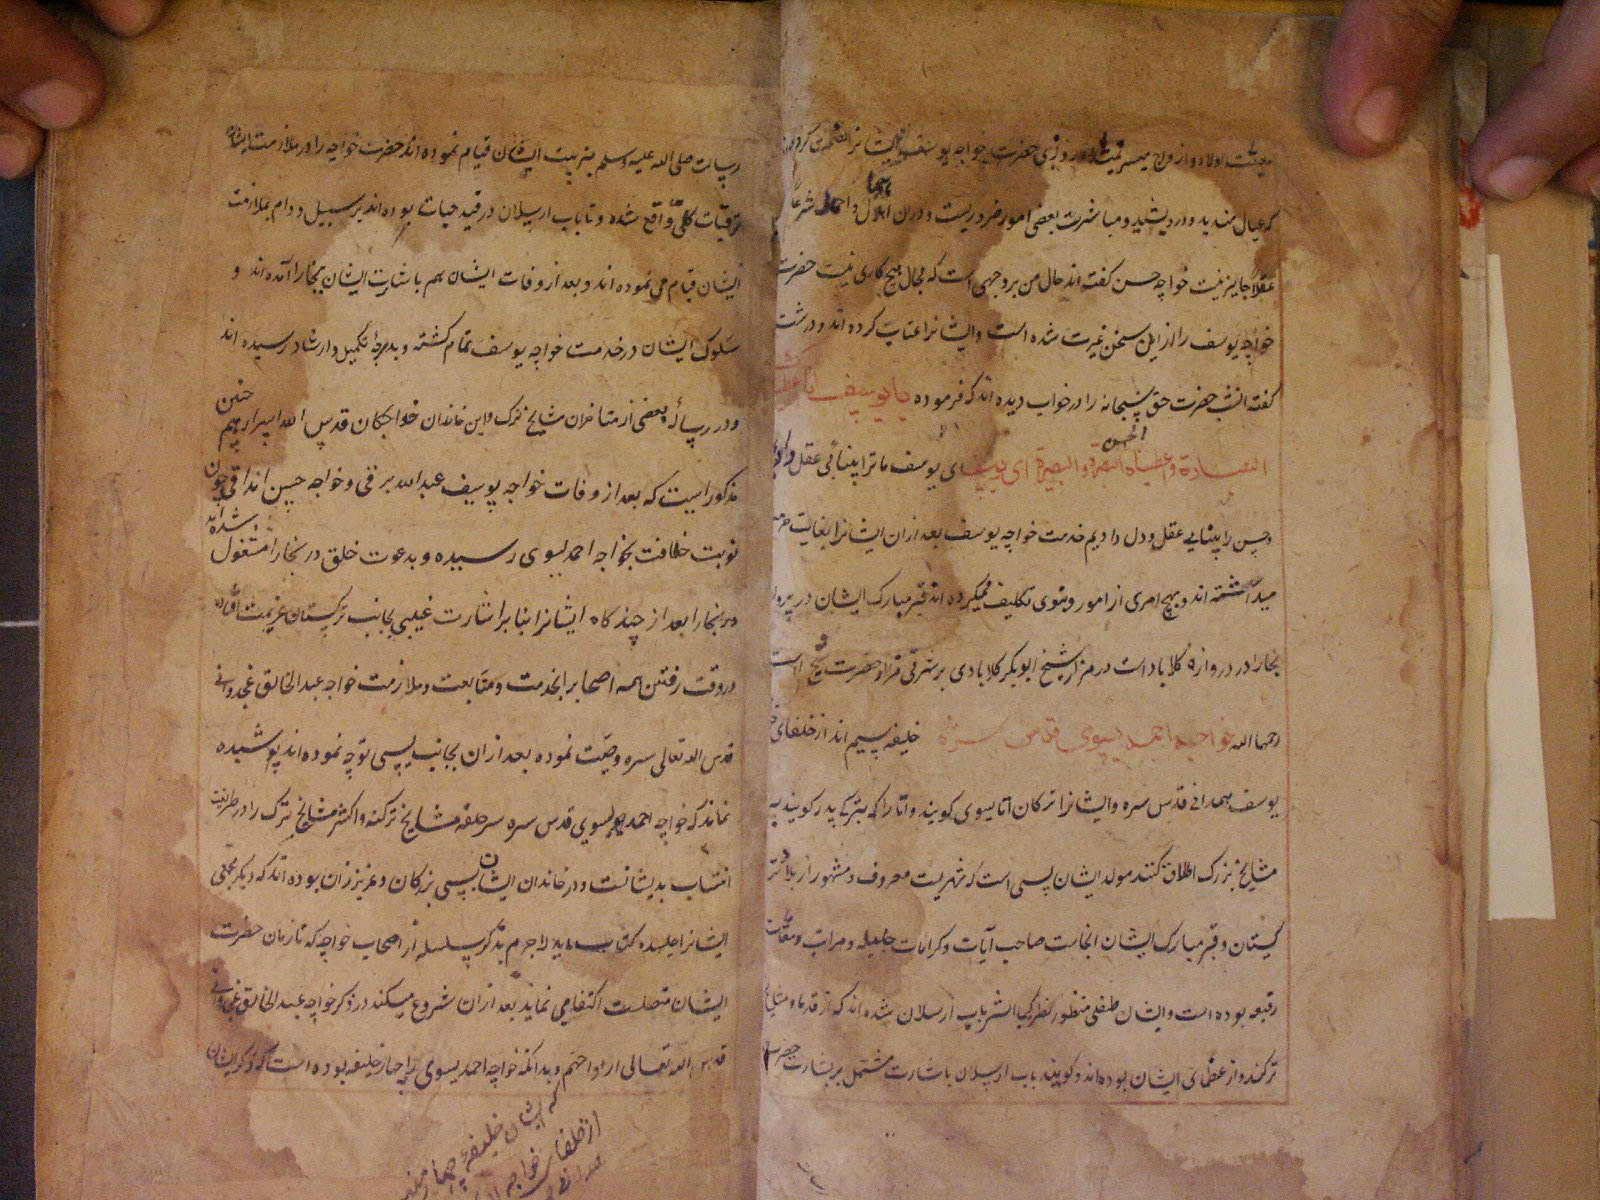 معیشت اولاد و ازواج میسر نیست روزی حضرت خواجه یوسف ایشانرا نصیحت کرده
که عیال مندید و درویشید و مباشرت بعضی امور ضروریست و در آن اهمال و اخلال شرعا
عقلا جایز نیست خواجه حسن گفته اند حال من بر وجهی است که مجال هیچ کاری نیست حضرت
خواجه یوسف را از این سخن غیرت شده است و ایشانرا عتاب کرده اند و درشت
گفته انشب حضرت حق سبحانه را در خواب دیده اند که فرموده یا یوسف انا اعطیناک
ای یوسف ما ترا بینائی عقل دادیم
و حسن را بینایی عقل و دل دادیم خدمت خواجه یوسف بعد از ان ایشانرا بغایت حرمت
میداشته اند و بهیچ امری از امور دنیوی تکلیف نمیکرده اند قبر مبارک ایشان در بیرون
بخارا در دروازه کلاباد است در مزار شیخ ابوبکر کلابادی بر شرقی مزار حضرت شیخ است
رحمهما الله خواجه احمد یسوی قدس سره خلیفه سیم اند از خلفای خواجه
یوسف همدانی قدس سره و ایشانرا ترکان اتا یسوی گویند و اتا را که بترکی پدر گویند به
مشایخ بزرگ اطلاق کنند مولد ایشان یسی است که شهریست معروف و مشهور از بلاد تر
کستان و قبر مبارک ایشان انجاست صاحب آیات و کرامات جلیله و مراتب و مقامات
رفیعه بوده است و ایشان در طفلی منظور نظر کیمیا اثر باب ارسلان شده اند که از قدماء مشایخ
ترکند و از عظمای ایشان بوده اند و گویند باب ارسلان باشارت مشتمل بر بشارت حضرت
رسالت صلی الله علیه وسلم بتربیت ایشان قیام نموده اند حضرت خواجه را در ملازمت ایشان
ترقیات کلی واقع شده و تا باب ارسلان در قید حیات بوده اند بر سبیل دوام بملازمت
ایشان قیام می نموده اند و بعد از وفات ایشان هم باشارت ایشان ببخارا آمده اند و
سلوک ایشان در خدمت خواجه یوسف تمام گشته و بدرجۀ تکمیل و ارشاد رسیده اند
و در رسالۀ بعضی از متاخران مشایخ ترک و این خاندان خواجگان قدس الله اسرارهم چنین
مذکور است که بعد از وفات خواجه یوسف عبدالله برقی و خواجه حسن انداقی چون
نوبت خلافت بخواجه احمد یسوی رسیده و بدعوت خلق در بخارا مشغول شده اند
در بخارا بعد از چندگاه ایشانرا بنا بر اشارت غیبی بجانب ترکستان عزیمت افتاده
در وقت رفتن همه اصحابرا بخدمت و متابعت و ملازمت خواجه عبدالخالق غجدوانی
قدس الله تعالی سره وصیت نموده بعد از ان بجانب یسی توجه نموده اند پوشیده
نماند که خواجه احمد یسوی قدس سره سر حلقه مشایخ ترکند و اکثر مشایخ ترک را در طریقت
انتساب بدیشانست و در خاندان ایشان بسی بزرگان و عزیزان بوده اند که ذکر جمیع
ایشانرا علیحده کتاب باید لاجرم بذکر سلسله از اصحاب خواجه که تا زمان حضرت
ایشان متصلست اکتفا می نماید بعد از ان شروع میکند در ذکر خواجه عبدالخالق غجدوانی
قدس الله تعالی ارواحهم و بدانکه خواجه احمد یسوی را چهار خلیفه بوده است که ذکر ایشان
که ایشان خلیفۀ چهارم
از خلفاء
خواجه